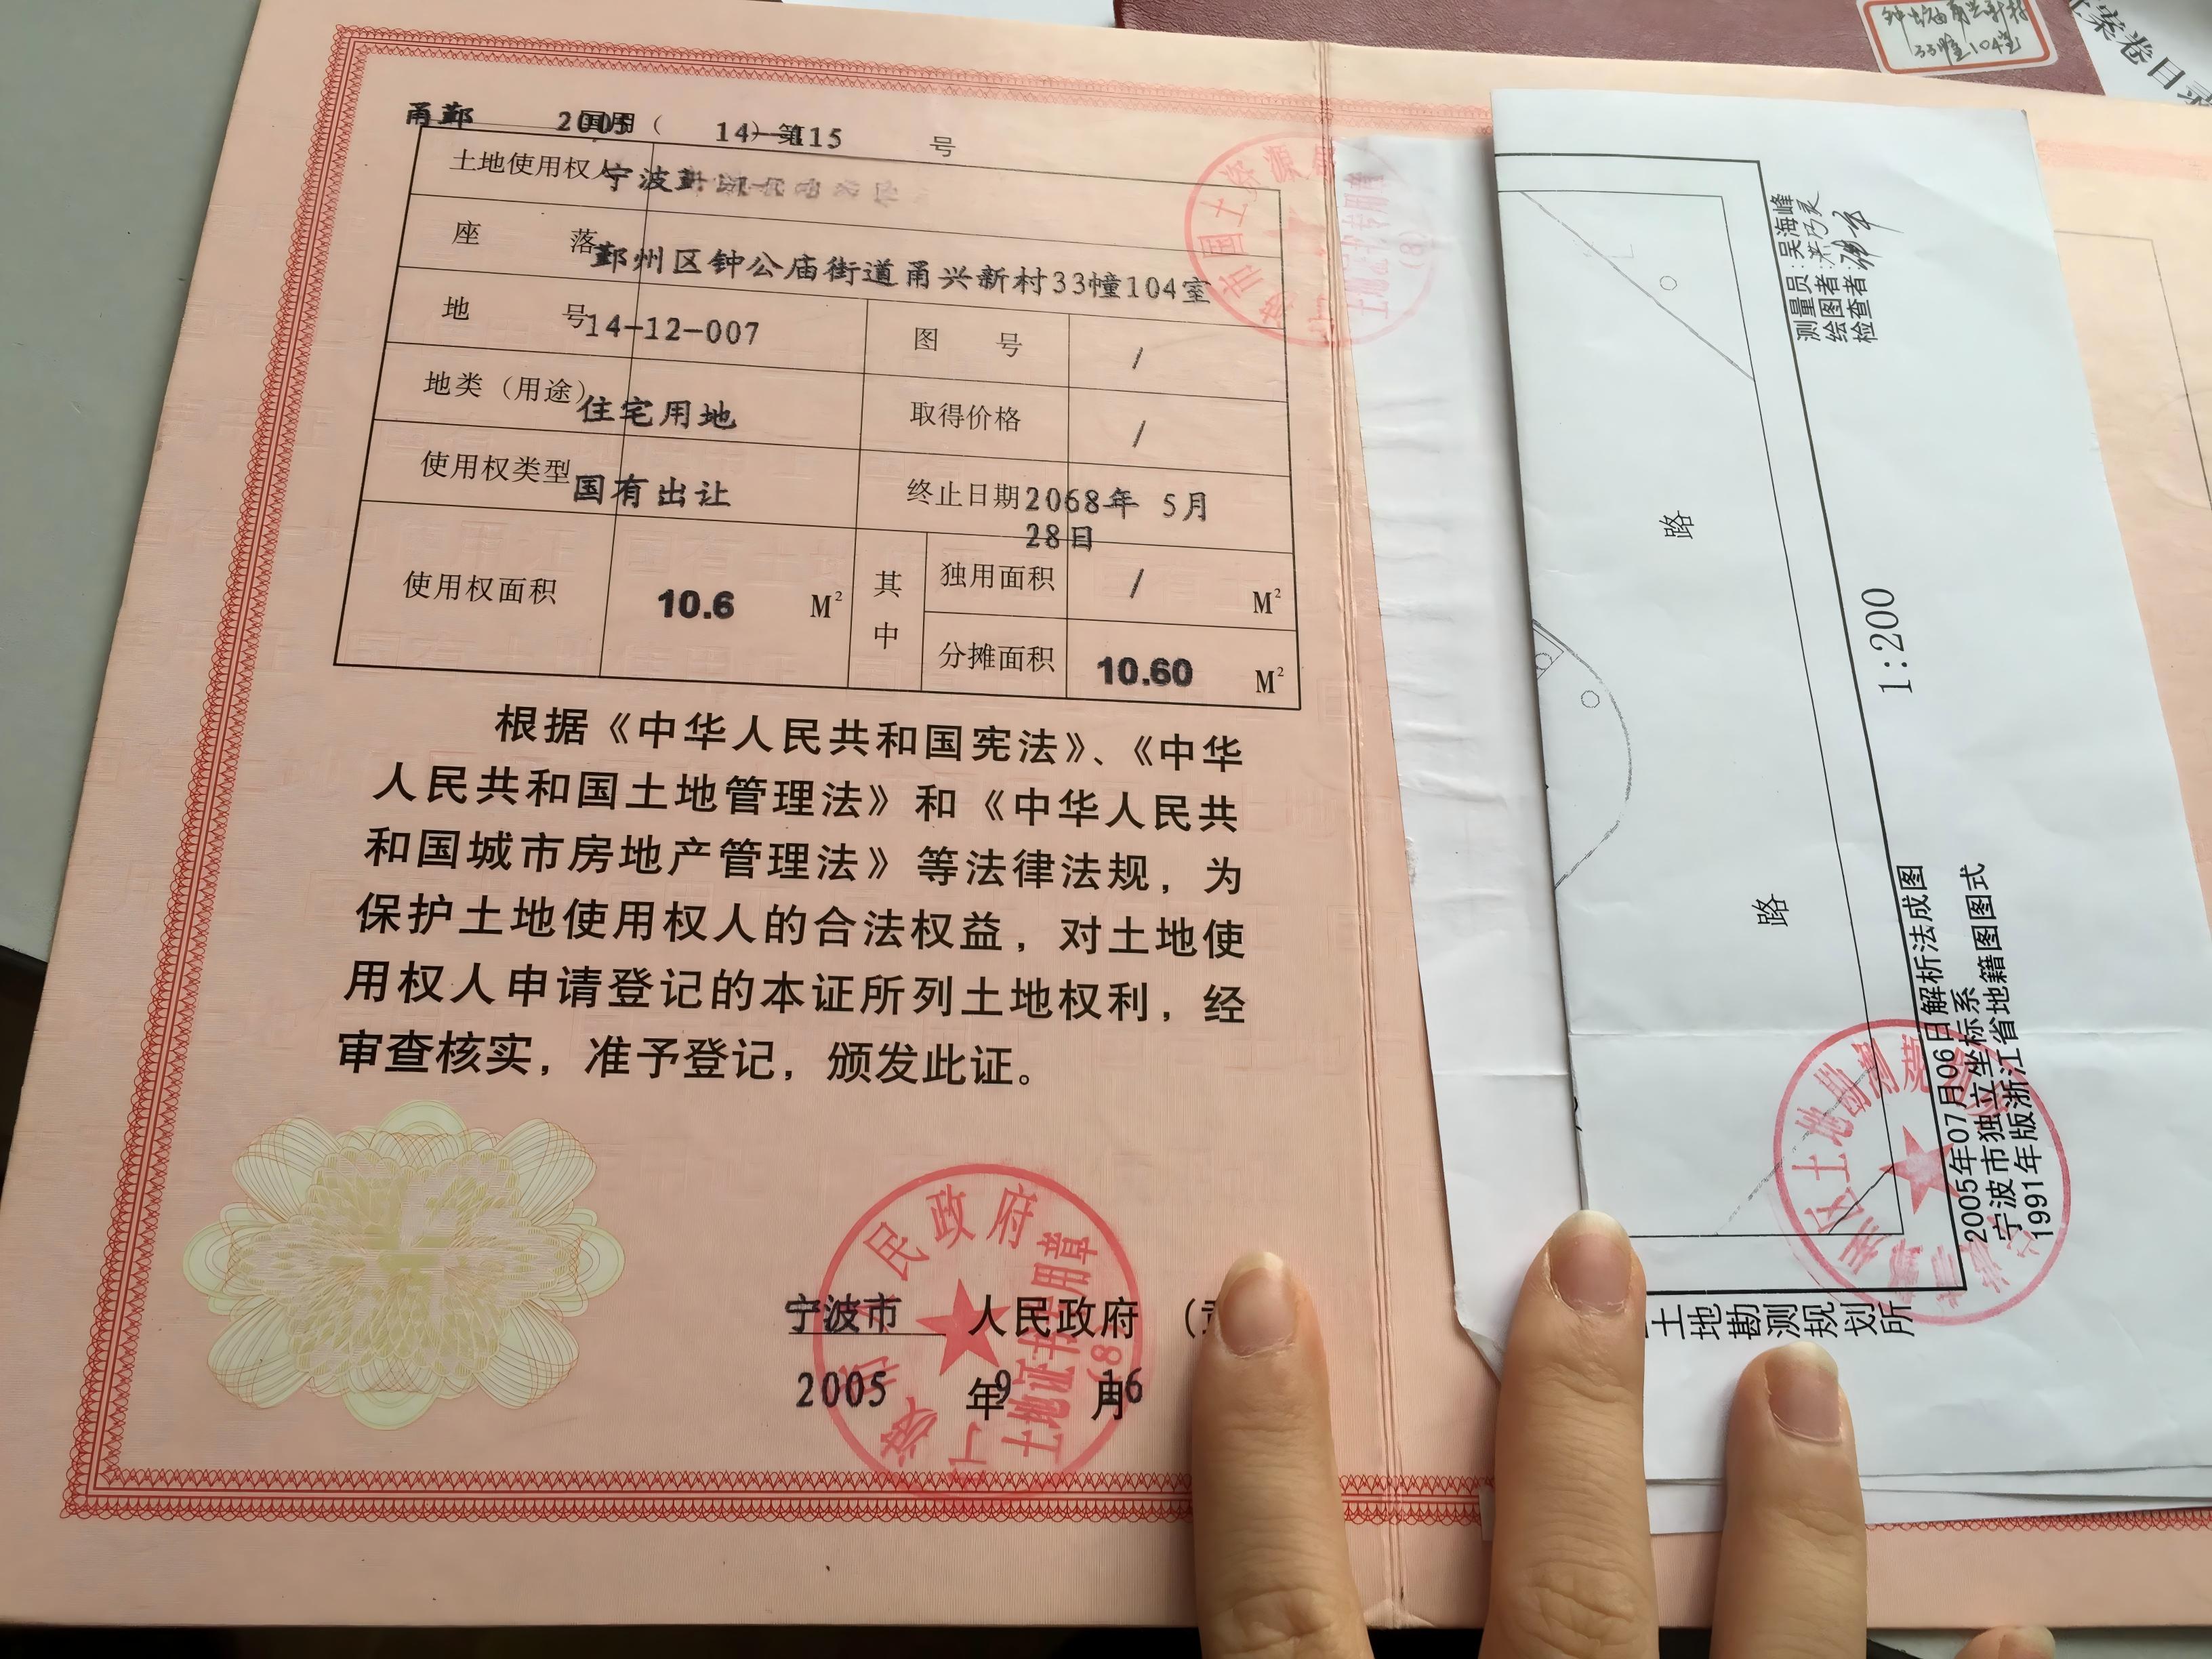 甬鄞 国用（2005）第14-115号
土地使用权人 宁波
座落 鄞州区钟公庙街道甬兴新村33幢104室
地号 14-12-007 图号 /
地类（用途） 住宅用地 取得价格 /
使用权类型 国有出让 终止日期 2068年 5月
28日
使用权面积 10.6 M² 其中 独用面积 / M²
分摊面积 10.60 M²
根据《中华人民共和国宪法》、《中华
人民共和国土地管理法》和《中华人民共
和国城市房地产管理法》等法律法规，为
保护土地使用权人的合法权益，对土地使
用权人申请登记的本证所列土地权利，经
审查核实，准予登记，颁发此证。
宁波市 人民政府（
2005 年 9 月 16
宁波市人民政府
土地证书专用章
(8)
国土资源
土地证书专用章
(8)
钟公庙甬兴新村
33幢104室
案卷目录
测量员：吴海峰
绘图者：
检查者：
路
路
1:200
2005年07月06日解析法成图
宁波市独立坐标系
1991年版浙江省地籍图图式
土地勘测规划所
土地勘测规